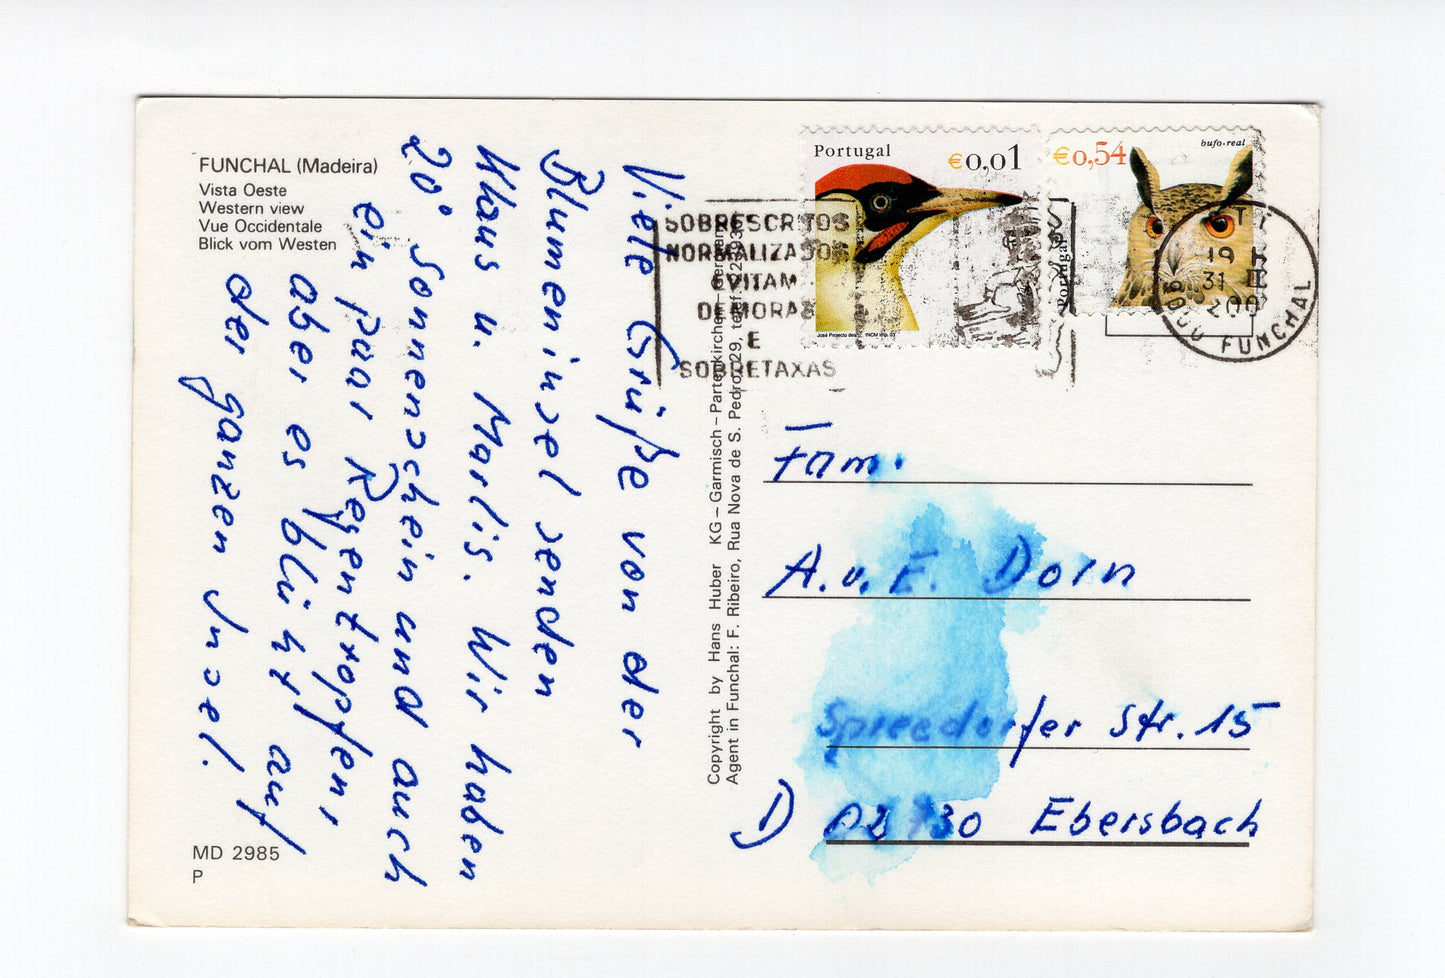 FUNCHAL (Madeira)
Vista Oeste
Western view
Vue Occidentale
Blick vom Westen
Viele Grüße von der
Blumeninsel senden
Klaus u. Marlis. Wir haben
20° Sonnenschein und auch
ein paar Regentropfen,
aber es blüht auf
der ganzen Insel.
MD 2985
P
Copyright by Hans Huber KG – Garmisch – Partenkirchen
Agent in Funchal: F. Ribeiro, Rua Nova de S. Pedro, 29, telef.
SOBRESCRITOS
NORMALIZADOS
EVITAM
DEMORAS
E
SOBRETAXAS
Portugal
€0,01
€0,54
bufo-real
Portugal
19
31
FUNCHAL
Fam.
A. u. E. Dorn
Spreedorfer Str. 15
D 02730 Ebersbach